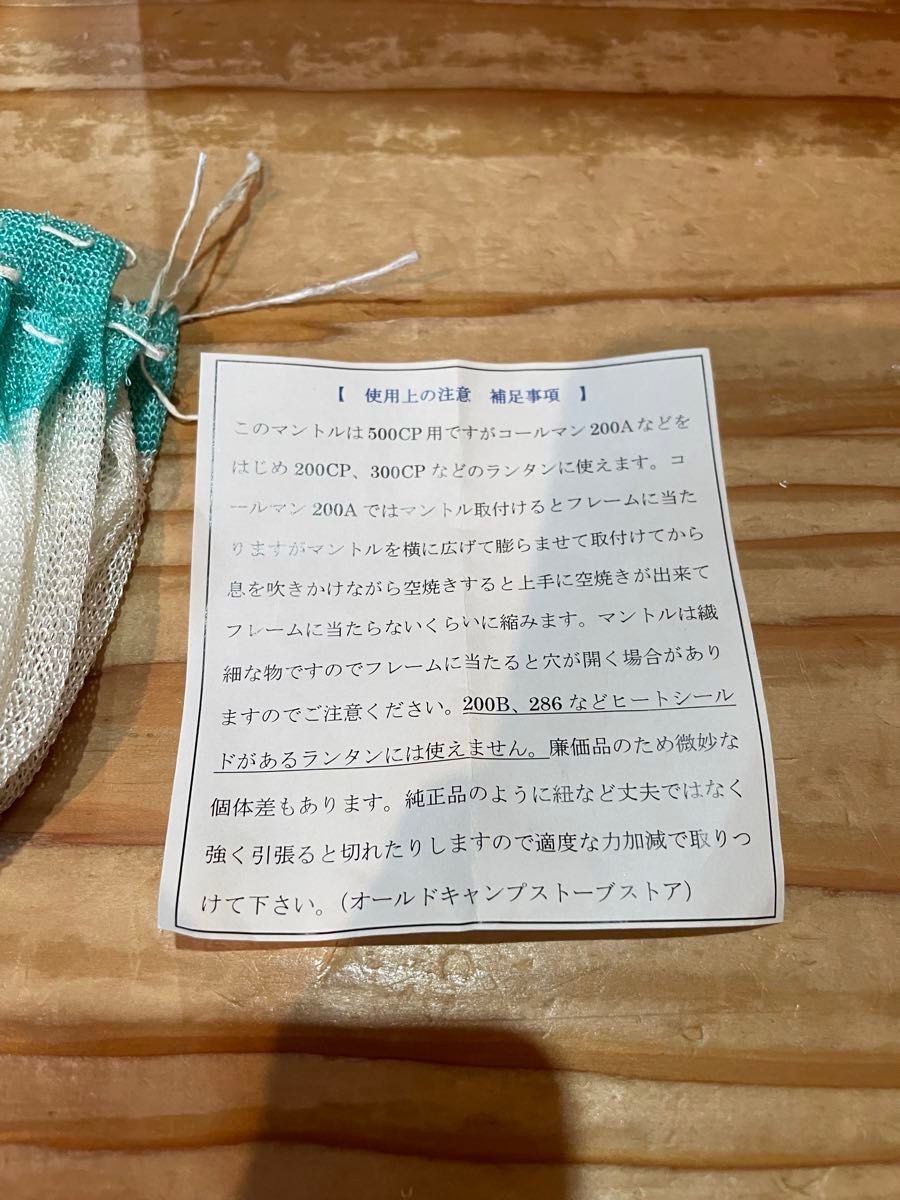 【 使用上の注意 補足事項 】
このマントルは500CP用ですがコールマン200Aなどを
はじめ200CP、300CPなどのランタンに使えます。コ
ールマン200Aではマントル取付けるとフレームに当た
りますがマントルを横に広げて膨らませて取付けてから
息を吹きかけながら空焼きすると上手に空焼きが出来て
フレームに当たらないくらいに縮みます。マントルは繊
細な物ですのでフレームに当たると穴が開く場合があり
ますのでご注意ください。200B、286などヒートシール
ドがあるランタンには使えません。廉価品のため微妙な
個体差もあります。純正品のように紐など丈夫ではなく
強く引張ると切れたりしますので適度な力加減で取りつ
けて下さい。(オールドキャンプストーブストア)